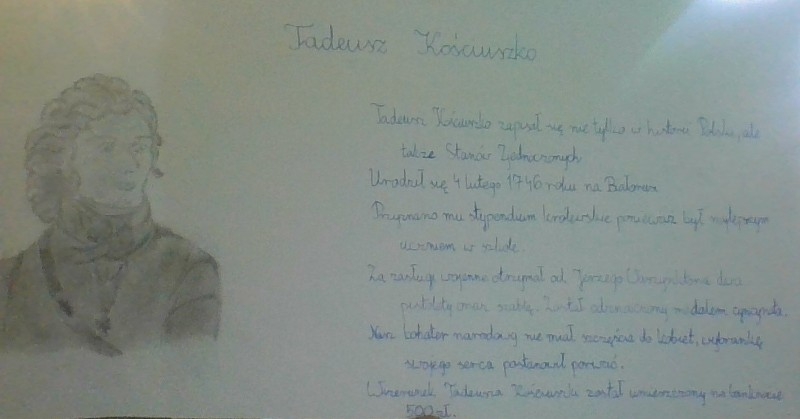 Tadeusz Kościuszko
Tadeusz Kościuszko zapisał się nie tylko w historii Polski, ale
także Stanów Zjednoczonych
Urodził się 4 lutego 1746 roku na Białorusi
Przyznano mu stypendium królewskie ponieważ był najlepszym
uczniem w szkole.
Za zasługi wojenne otrzymał od Jerzego Waszyngtona dwa
pistolety oraz szablę. Został odznaczony medalem
Nasz bohater narodowy nie miał szczęścia do kobiet, wybrankę
swojego serca postanowił porwać.
Wizerunek Tadeusza Kościuszki został umieszczony na banknocie
500 zł.